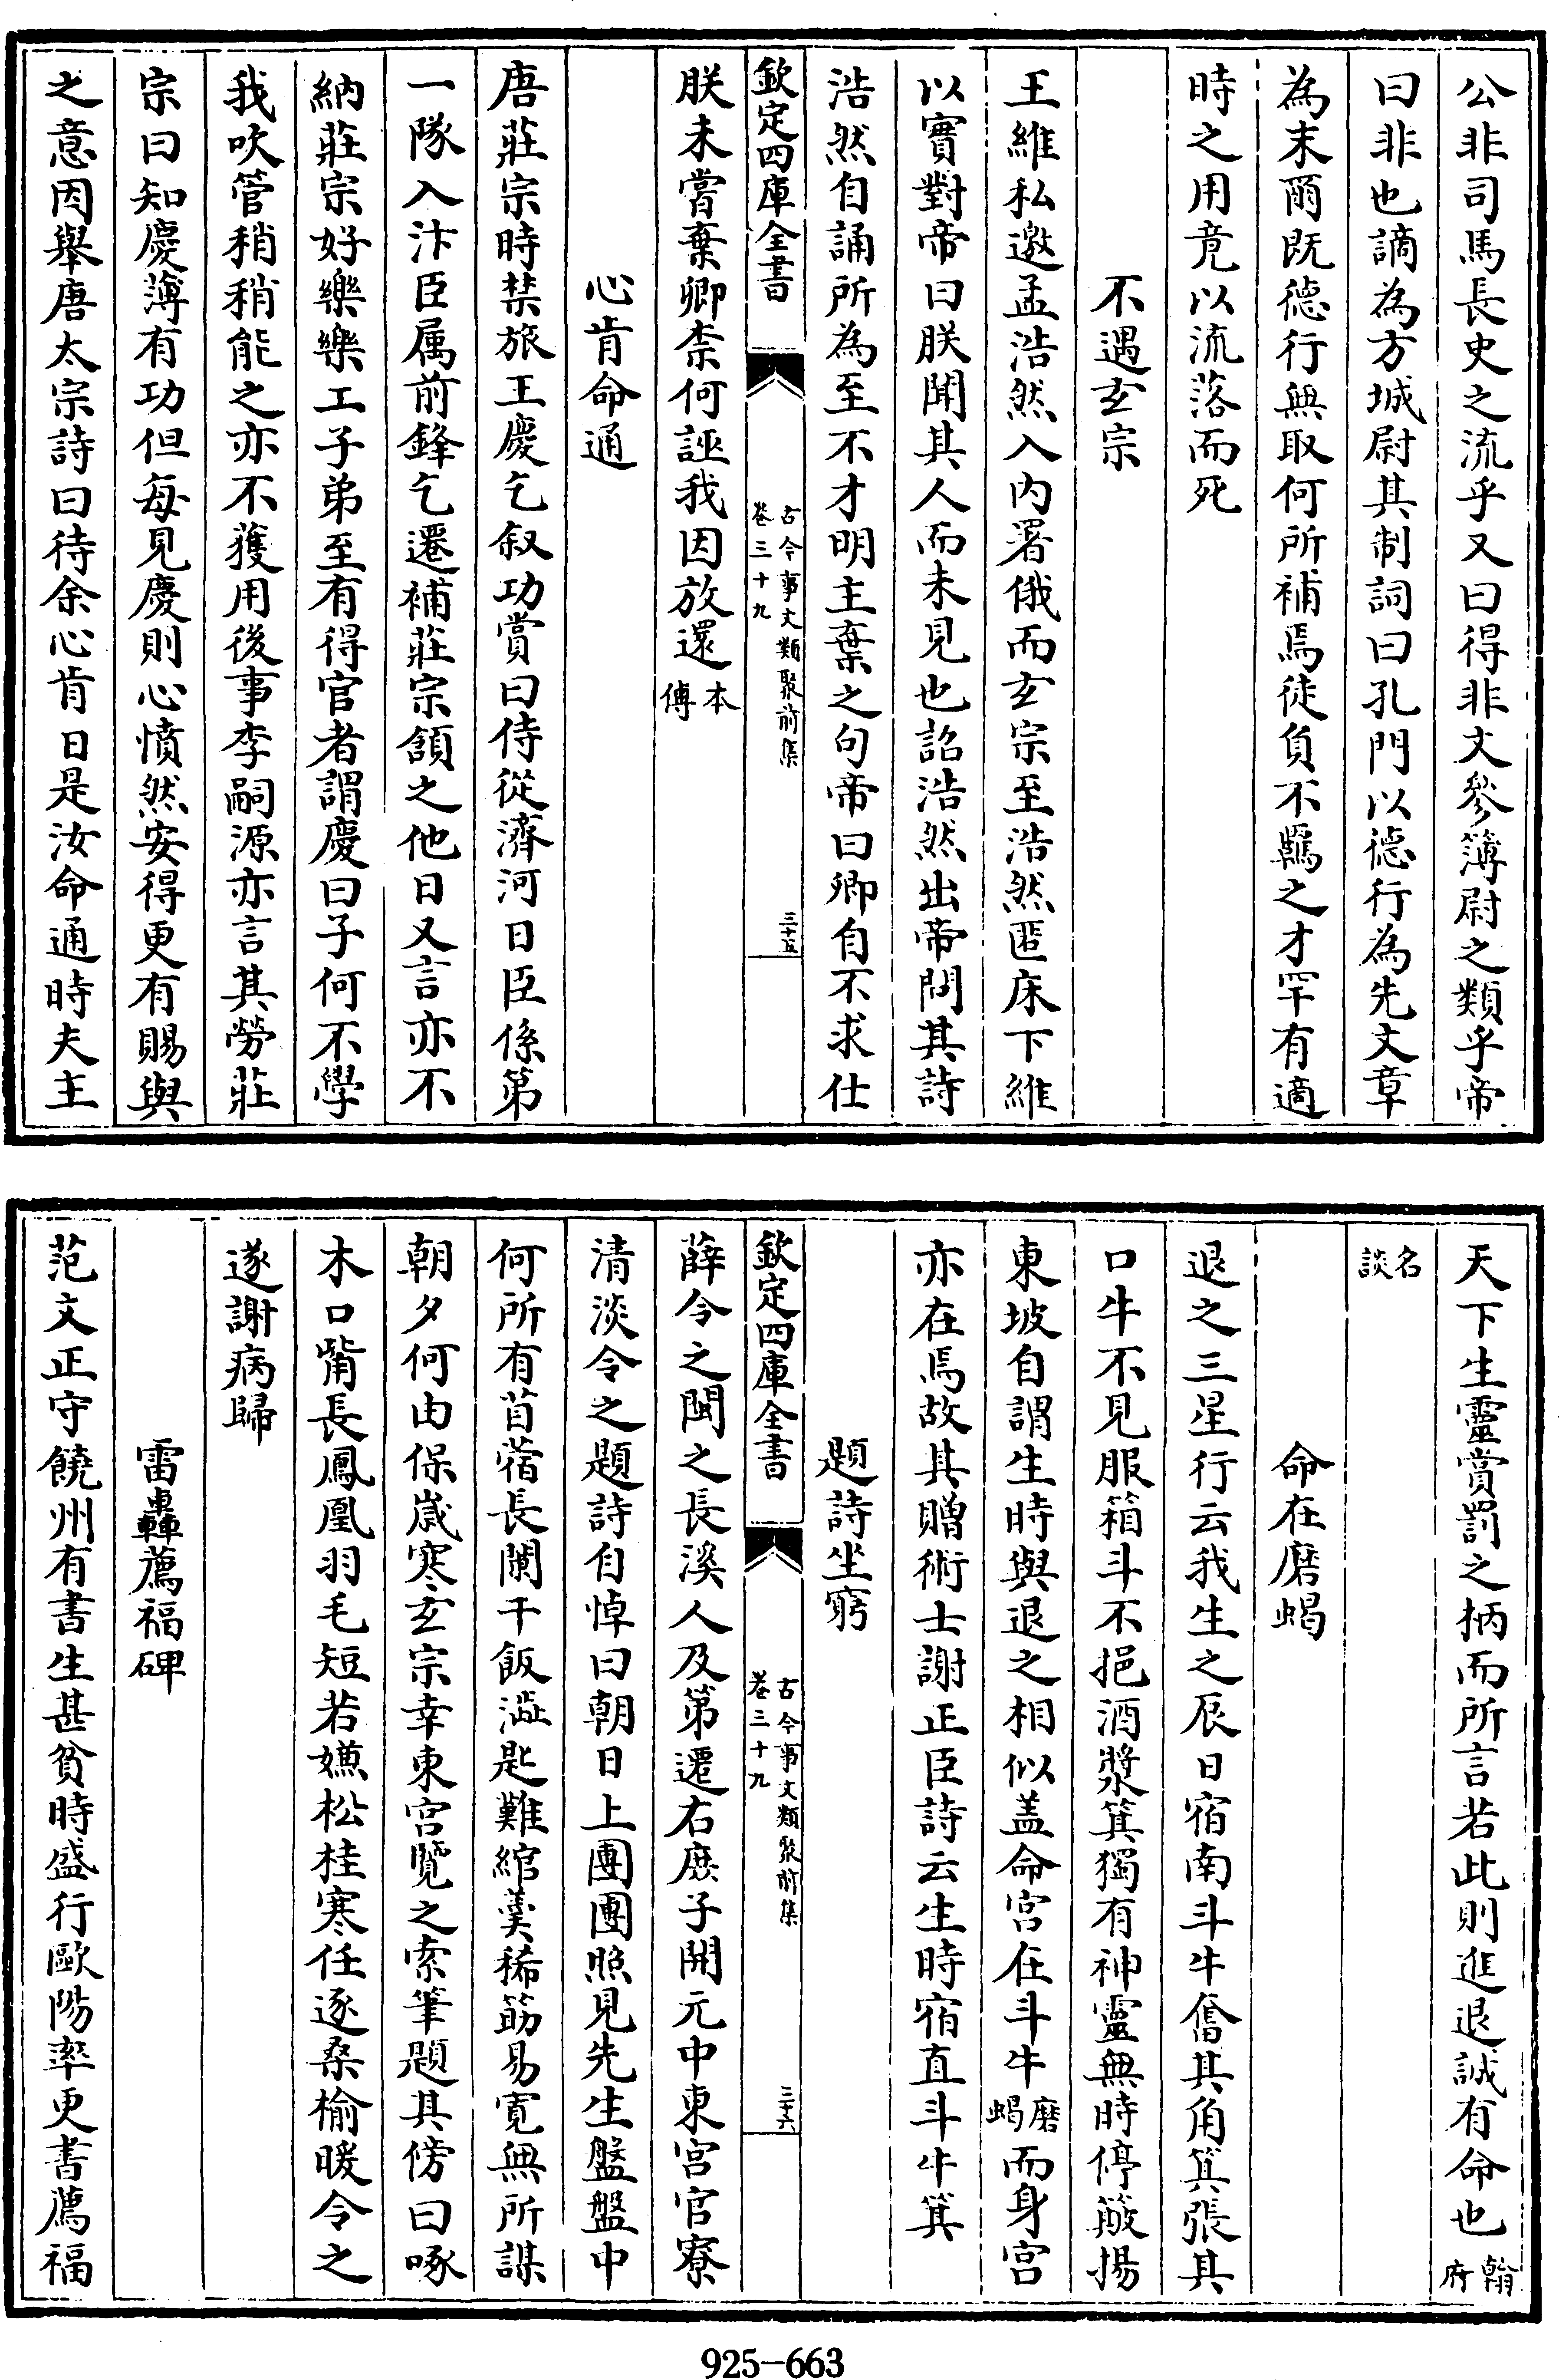 公非司馬長史之流乎又曰得非文參簿尉之類乎帝
曰非也謫為方城尉其制詞曰孔門以德行為先文章
為末爾既德行無取何所補焉徒負不羈之才罕有適
時之用竟以流落而死
不遇玄宗
王維私邀孟浩然入内署俄而玄宗至浩然匿床下維
以實對帝曰朕聞其人而未見也詔浩然出帝問其詩
浩然自誦所為至不才明主棄之句帝曰卿自不求仕
欽定四庫全書
古今事文類聚前集
卷三十九
三十五
朕未嘗棄卿柰何誣我因放還本傳
心肯命通
唐莊宗時禁旅王慶乞叙功賞曰侍從濟河日臣係第
一隊入汴臣属前鋒乞遷補莊宗頷之他日又言亦不
納莊宗好樂樂工子弟至有得官者謂慶曰子何不學
我吹管稍稍能之亦不獲用後事李嗣源亦言其勞莊
宗曰知慶薄有功但每見慶則心憤然安得更有賜與
之意因舉唐太宗詩曰待余心肯日是汝命通時夫主
天下生靈賞罰之柄而所言若此則進退誠有命也翰府
名談
命在磨蝎
退之三星行云我生之辰日宿南斗牛奮其角箕張其
口牛不見服箱斗不挹酒漿箕獨有神靈無時停簸揚
東坡自謂生時與退之相似盖命宫在斗牛磨蝎而身宫
亦在焉故其贈術士謝正臣詩云生時宿直斗牛箕
題詩坐窮
欽定四庫全書
古今事文類聚前集
卷三十九
三十六
薛令之閩之長溪人及第遷右庶子開元中東宫官寮
清淡令之題詩自悼曰朝日上團團照見先生盤盤中
何所有苜蓿長闌干飯澁匙難綰羮稀筯易寛無所謀
朝夕何由保嵗寒玄宗幸東宫覽之索筆題其傍曰啄
木口觜長鳳凰羽毛短若嫌松桂寒任逐桑榆暖令之
遂謝病歸
雷轟薦福碑
范文正守饒州有書生甚貧時盛行歐陽率更書薦福
925-663